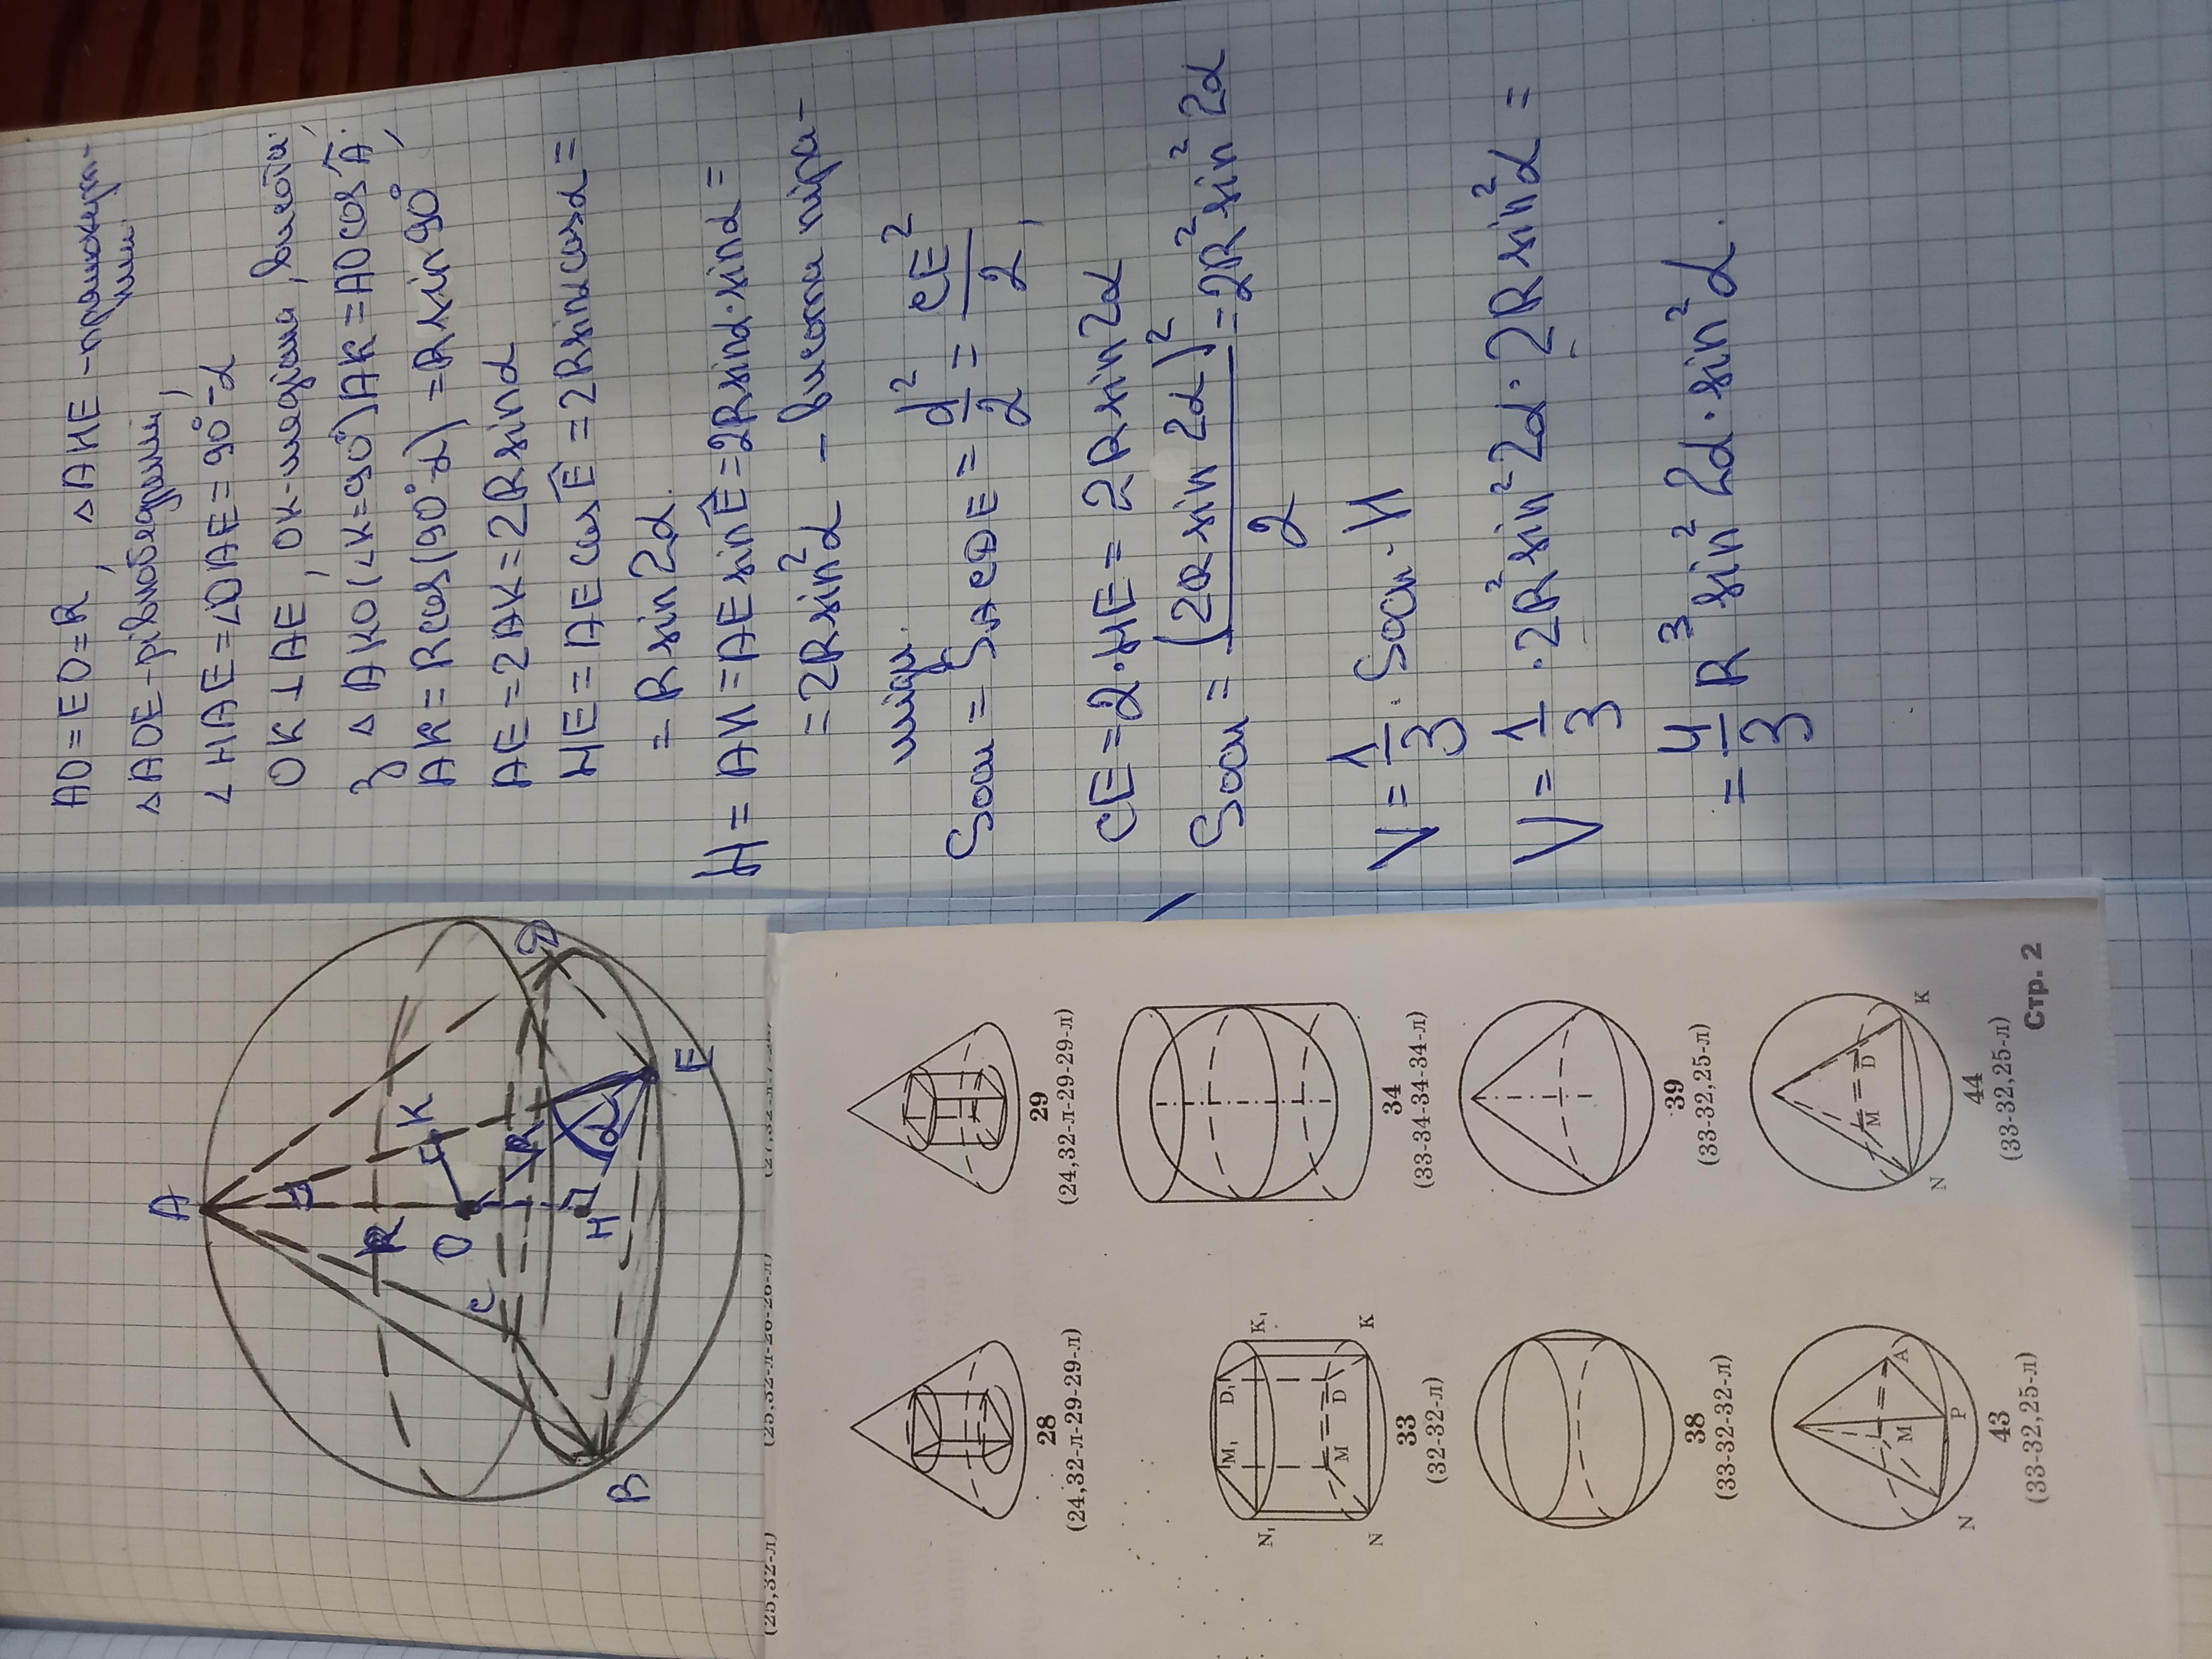 AO=EO=R, △AHE-прямокут-
ний.
△AOE-рівнобедрений,
∠HAE=∠OAE=90°-α
OK⊥AE, OK-медіана, висота.
З △AKO(∠K=90°)AK=AOcosÂ,
AK=Rcos(90°-α)=Rsin90°
AE=2AK=2Rsinα
HE=AEcosÊ=2Rsinαcosα=
=Rsin2α.
H=AH=AEsinÊ=2Rsinα·sinα=
=2Rsin²α - висота піра-
міди.
Sосн=SBCDE=d²/2=CE²/2,
CE=2·HE=2Rsin2α
Sосн=(2Rsin2α)²/2=2R²sin²2α
V=1/3·Sосн·H
V=1/3·2R²sin²2α·2Rsin²α=
=4/3R³sin²2α·sin²α.
A
K
R
O
R
C
D
H
α
E
B
(25,32-л)
28
(24,32-л-29-29-л)
29
(24,32-л-29-29-л)
N₁
M₁
D₁
K₁
N
M
D
K
33
(32-32-л)
34
(33-34-34-34-л)
38
(33-32-32-л)
39
(33-32,25-л)
N
M
P
A
43
(33-32,25-л)
N
M
D
K
44
(33-32,25-л)
Стр. 2